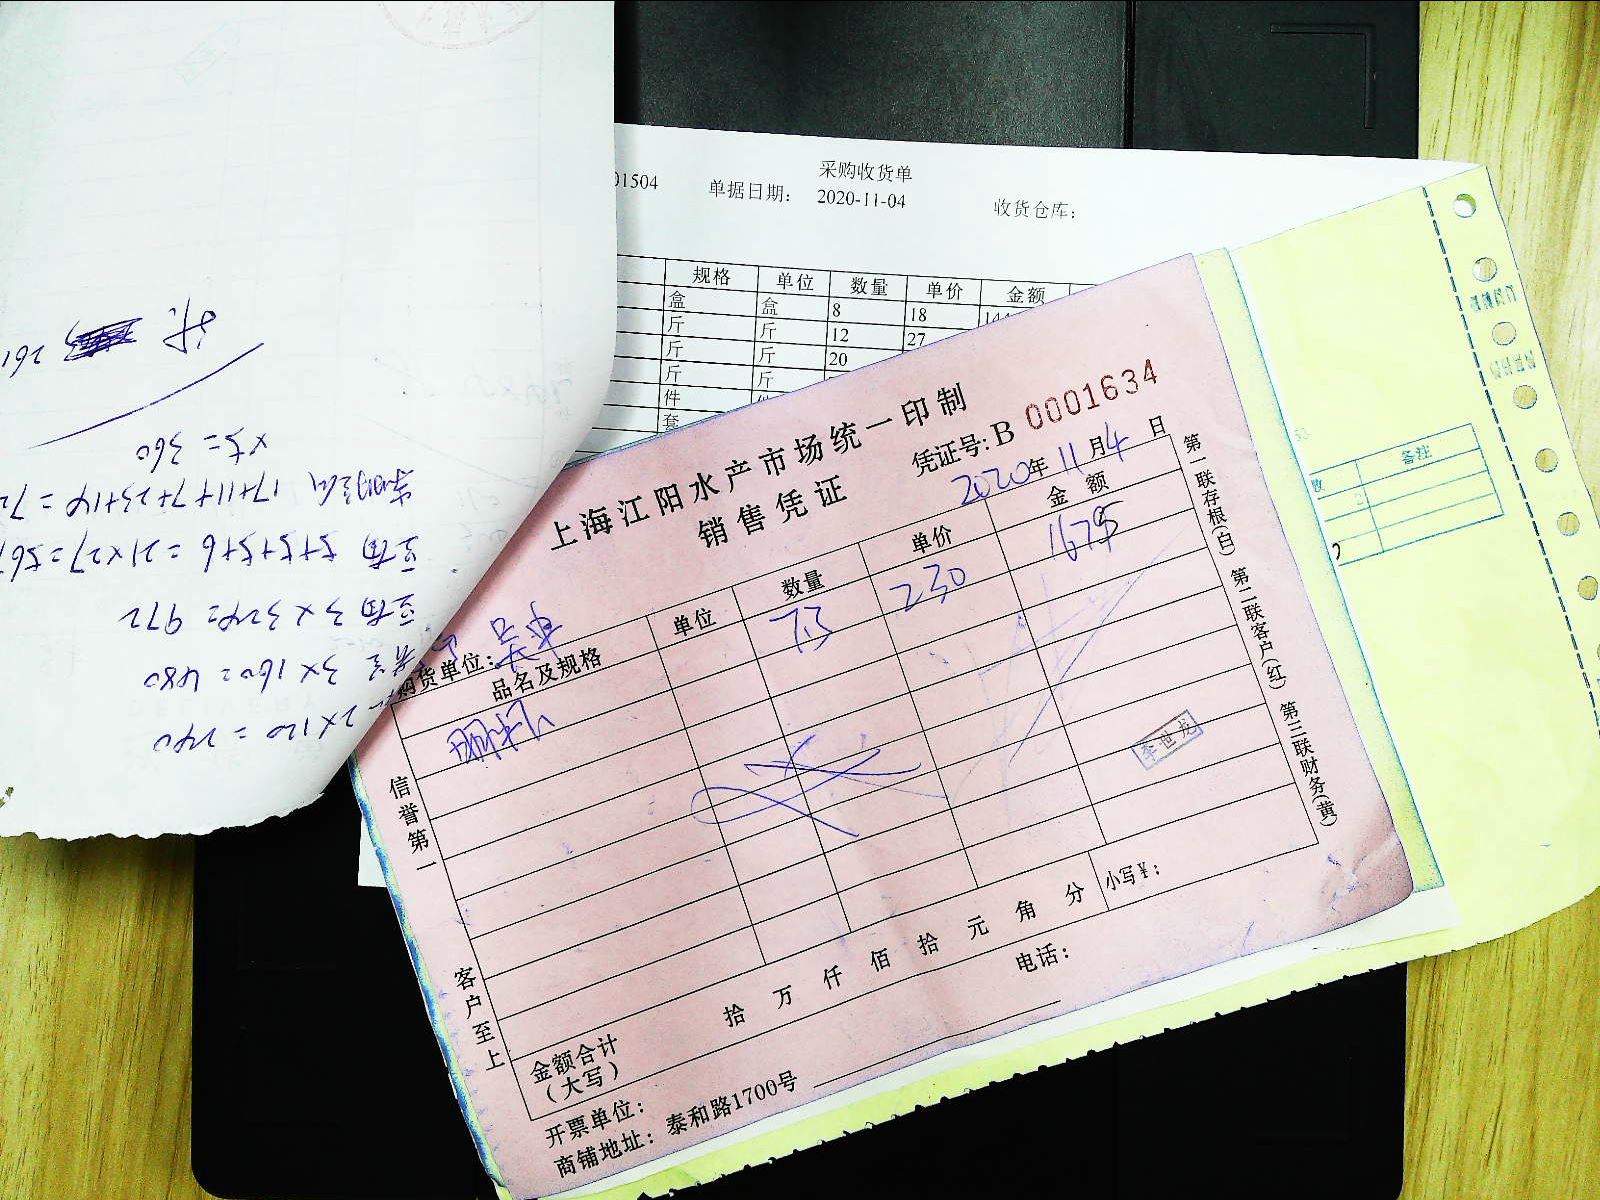 采购收货单
01504 单据日期: 2020-11-04 收货仓库:
规格 单位 数量 单价 金额
盒 盒 8 18 144
斤 斤 12 27
斤 斤 20
斤 斤
件
套
上海江阳水产市场统一印制
销售凭证
凭证号: B 0001634
2020年 11月 4日
购货单位:
品名及规格 单位 数量 单价 金额
明虾 7.3 230 1679
李世龙
信誉第一
客户至上
金额合计
(大写)
拾 万 仟 佰 拾 元 角 分 小写¥:
开票单位: 电话:
商铺地址: 泰和路1700号
第一联存根(白) 第二联客户(红) 第三联财务(黄)
备注
2×120=240
3×160=480
3×324=972
5+5+5+6=21×27=567
17+11+7+23+14=72
×5=360
261